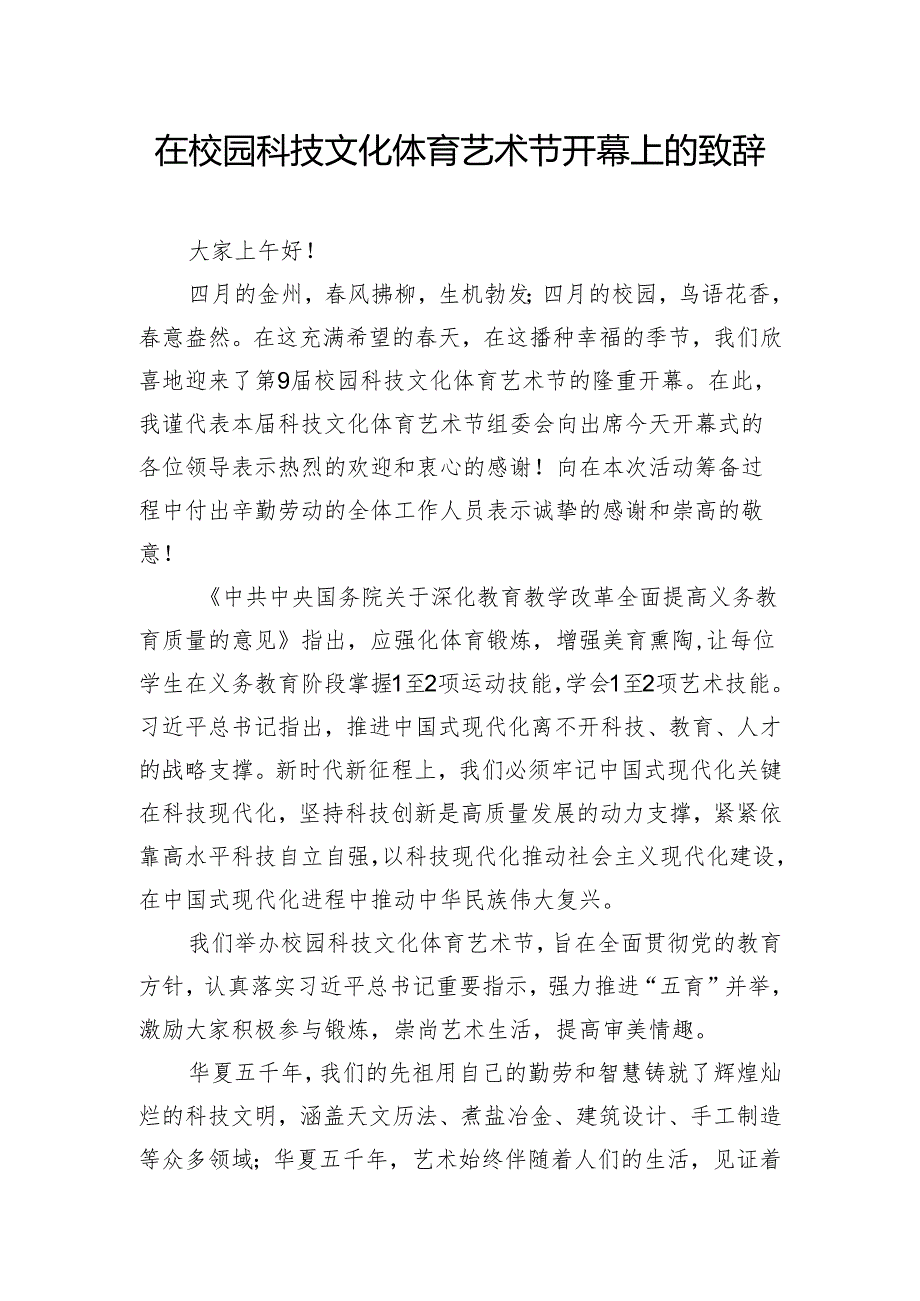 在校园科技文化体育艺术节开幕上的致辞
大家上午好！
四月的金州，春风拂柳，生机勃发；四月的校园，鸟语花香，
春意盎然。在这充满希望的春天，在这播种幸福的季节，我们欣
喜地迎来了第9届校园科技文化体育艺术节的隆重开幕。在此，
我谨代表本届科技文化体育艺术节组委会向出席今天开幕式的
各位领导表示热烈的欢迎和衷心的感谢！向在本次活动筹备过
程中付出辛勤劳动的全体工作人员表示诚挚的感谢和崇高的敬
意！
《中共中央国务院关于深化教育教学改革全面提高义务教
育质量的意见》指出，应强化体育锻炼，增强美育熏陶,让每位
学生在义务教育阶段掌握1至2项运动技能,学会1至2项艺术技能。
习近平总书记指出，推进中国式现代化离不开科技、教育、人才
的战略支撑。新时代新征程上，我们必须牢记中国式现代化关键
在科技现代化，坚持科技创新是高质量发展的动力支撑，紧紧依
靠高水平科技自立自强,以科技现代化推动社会主义现代化建设，
在中国式现代化进程中推动中华民族伟大复兴。
我们举办校园科技文化体育艺术节,旨在全面贯彻党的教育
方针，认真落实习近平总书记重要指示，强力推进“五育”并举，
激励大家积极参与锻炼，崇尚艺术生活，提高审美情趣。
华夏五千年,我们的先祖用自己的勤劳和智慧铸就了辉煌灿
烂的科技文明，涵盖天文历法、煮盐冶金、建筑设计、手工制造
等众多领域；华夏五千年，艺术始终伴随着人们的生活，见证着